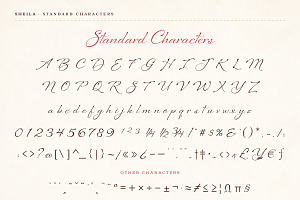 SHEILA - STANDARD CHARACTERS
Standard Characters
A B C D E F G H I J K L M
N O P Q R S T U V W X Y Z
a b c d e f g h i j k l m n o p q r s t u v w x y z
0 1 2 3 4 5 6 7 8 9 1 2 3 ¼ ½ ¾ ' " # $ % & ' ( ) * . , /
: < > ? @ [ \ ] ^ _ { | } ~
OTHER CHARACTERS
= + × ÷ − ± ¬ · ≈ ≠ ≤ ≥ ∫ Ω π §